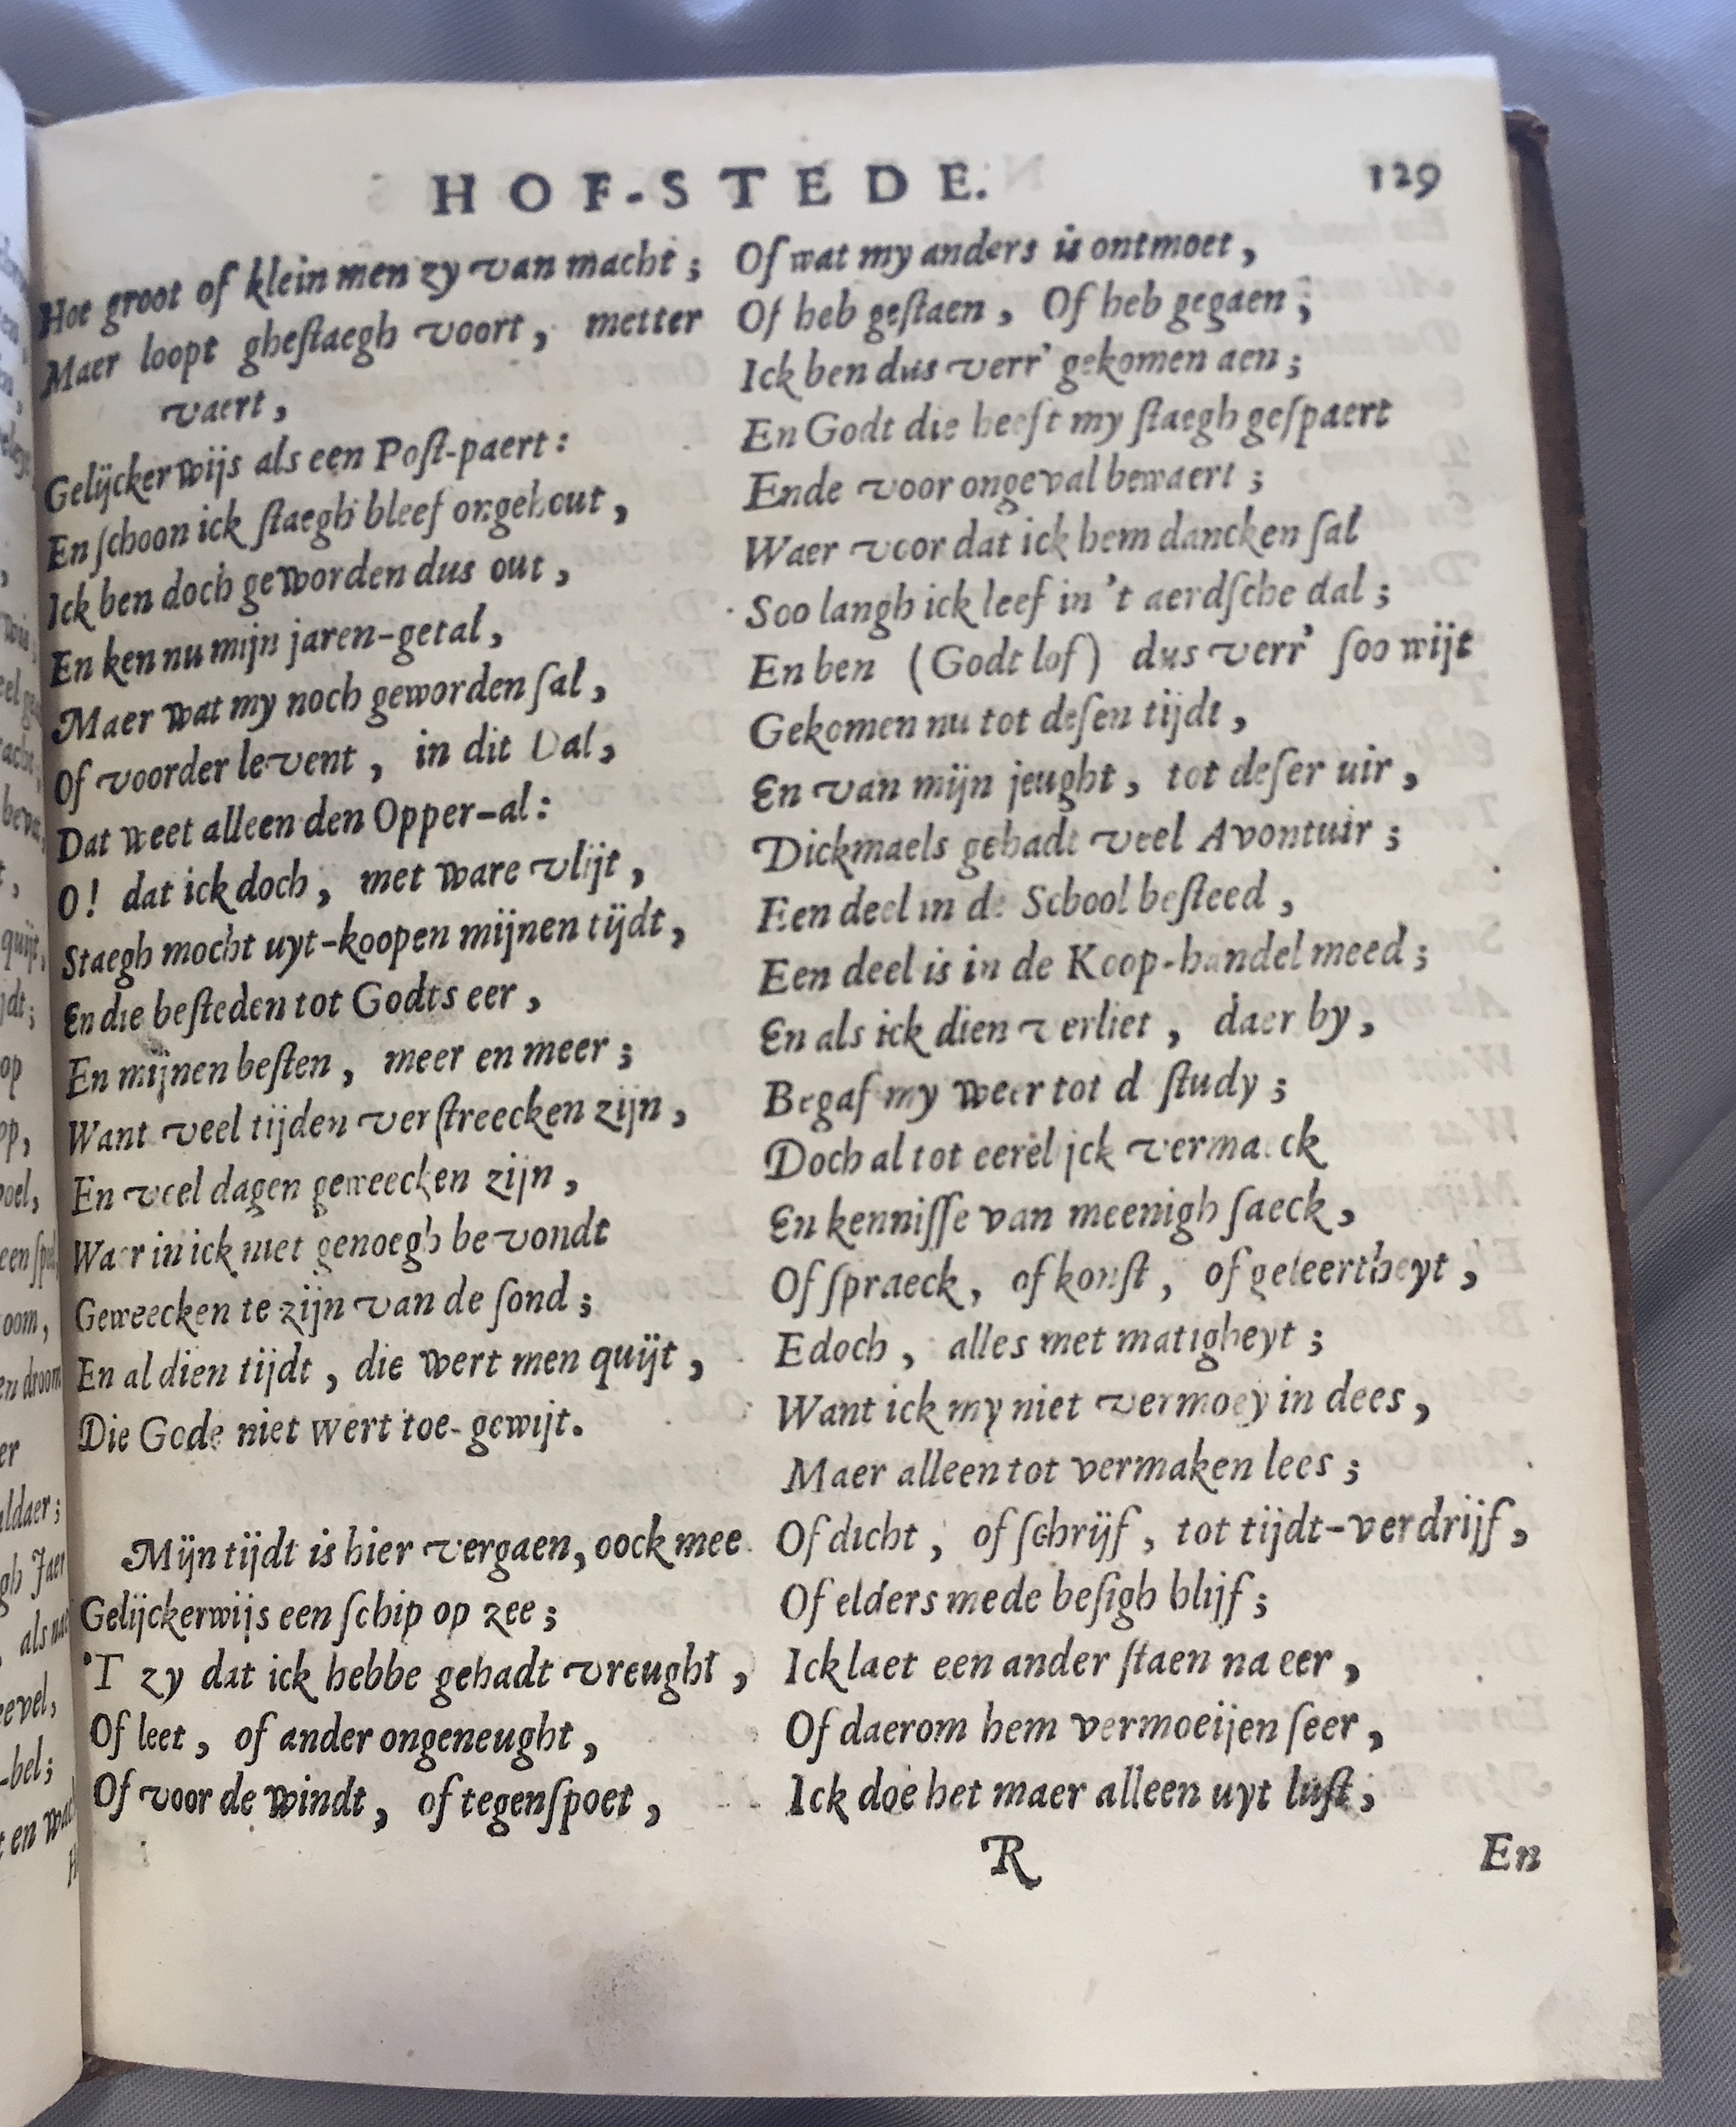 HOF-STEDE. 129
Hoe groot of klein men zy van macht ;
Maer loopt gheſtaegh voort, metter
vaert,
Gelijckerwijs als een Poſt-paert:
En ſchoon ick ſtaegh bleef ongehout,
Ick ben doch geworden dus out,
En ken nu mijn jaren-getal,
Maer wat my noch geworden ſal,
Of voorder levent, in dit Dal,
Dat weet alleen den Opper-al:
O! dat ick doch, met ware vlijt,
Staegh mocht uyt-koopen mijnen tijdt,
En die beſteden tot Godts eer,
En mijnen beſten, meer en meer ;
Want veel tijden verſtreecken zijn,
En veel dagen geweecken zijn,
Waer in ick niet genoegh bevondt
Geweecken te zijn van de ſond ;
En al dien tijdt, die wert men quijt,
Die Gode niet wert toe-gewijt.
Mijn tijdt is hier vergaen, oock mee
Gelijckerwijs een ſchip op zee ;
'T zy dat ick hebbe gehadt vreught,
Of leet, of ander ongeneught,
Of voor de windt, of tegenſpoet,
Of wat my anders is ontmoet,
Of heb geſtaen, Of heb gegaen ;
Ick ben dus verr' gekomen aen ;
En Godt die heeft my ſtaegh geſpaert
Ende voor ongeval bewaert ;
Waer voor dat ick hem dancken ſal
Soo langh ick leef in 't aerdſche dal ;
En ben (Godt lof) dus verr' ſoo wijt
Gekomen nu tot deſen tijdt,
En van mijn jeught, tot deſer uir,
Dickmaels gehadt veel Avontuir ;
Een deel in de School beſteed,
Een deel is in de Koop-handel meed ;
En als ick dien verliet, daer by,
Begaf my weer tot d ſtudy ;
Doch al tot eerelijck vermaeck
En kenniſſe van meenigh ſaeck,
Of ſpraeck, of konſt, of geleertheyt,
Edoch, alles met matigheyt ;
Want ick my niet vermoey in dees,
Maer alleen tot vermaken lees ;
Of dicht, of ſchrijf, tot tijdt-verdrijf,
Of elders mede beſigh blijf ;
Ick laet een ander ſtaen na eer,
Of daerom hem vermoeijen ſeer,
Ick doe het maer alleen uyt luſt,
R En